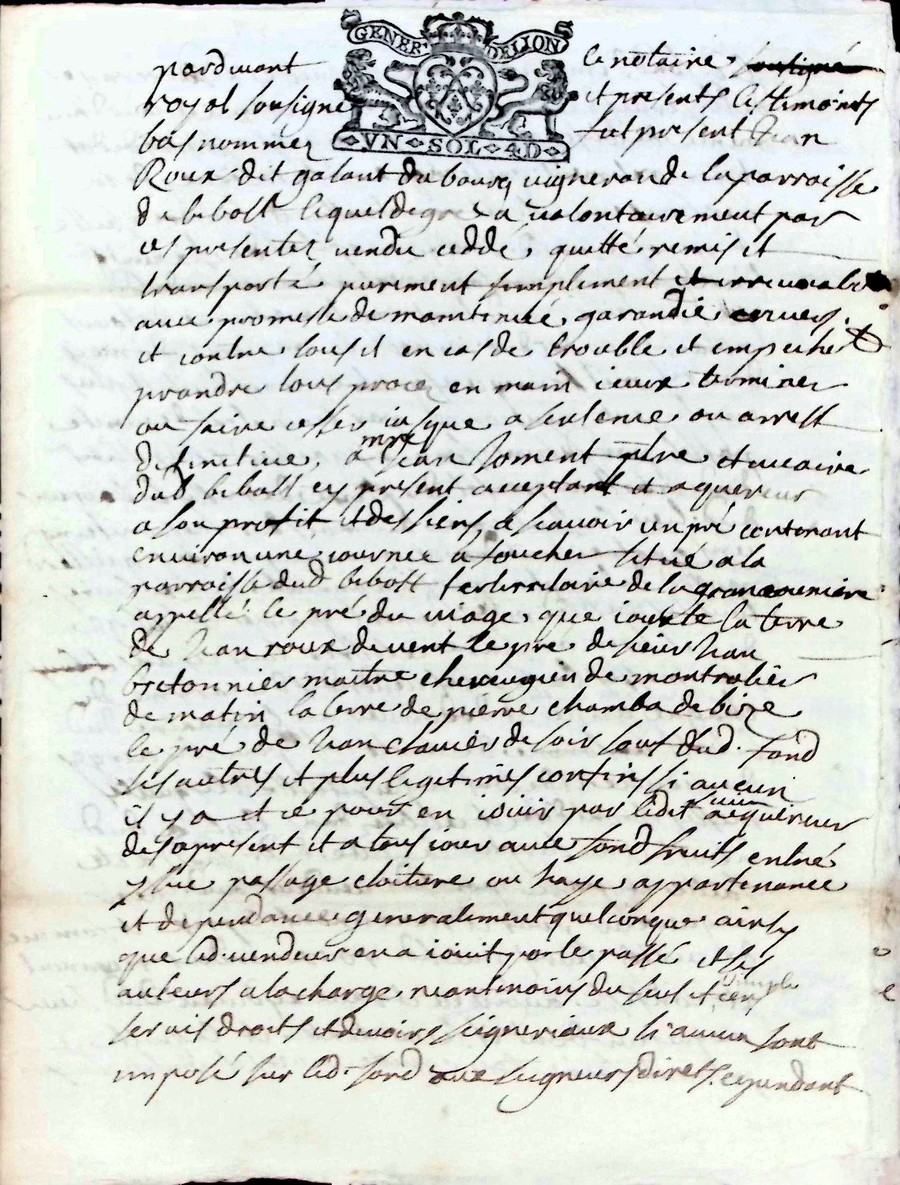 GENER DELION
VN SOL 4D
pardevant le notaire
royal sousigne et presents les temoints
bas nommez fut present Jean
Roux dit galant du bourg vigneron de la parroisse
de bibost lequel de gre a vollontairement par
ces presentes vendu ceddé, quitté remis et
transporté purement simplement et irrevocable
avec promesse de maintenüe, garandie envers
et contre tous et en cas de trouble et empeche
prandre tous procez en main iceux terminer
ou faire cesser jusque a sentence ou arrest
definitive, a mre Jean Joment ptre et vicaire
dud bibost cy present acceptant et aquereur
a son profit et des siens, a scavoir un pré contenant
environ une journee a faucher situé a la
parroisse dud bibost territoire de la
appellé le pré du viage, que jouxte la terre
de Jean roux de vent le pre de sieur Jean
bretonnier maitre chireurgien de montrotier
de matin la terre de pierre chamba de bize
le pré de Jean clavier de soir sauf dud. fond
ses autres et plus legitimes confins si aucun
il y a et ce pour en jouir par ledit sieur aquereur
des a present et a tousjours avec fond fruits entré
yssue passage cloiture ou haye, appartenance
et dependance generalement quelconque ainsy
que led. vendeur en a jouit par le passé et ses
auteurs a la charge neantmoins du cens et
servis droits et devoirs seigneriaux si aucun sont
imposé sur led. fond aux seigneurs direts. cependant